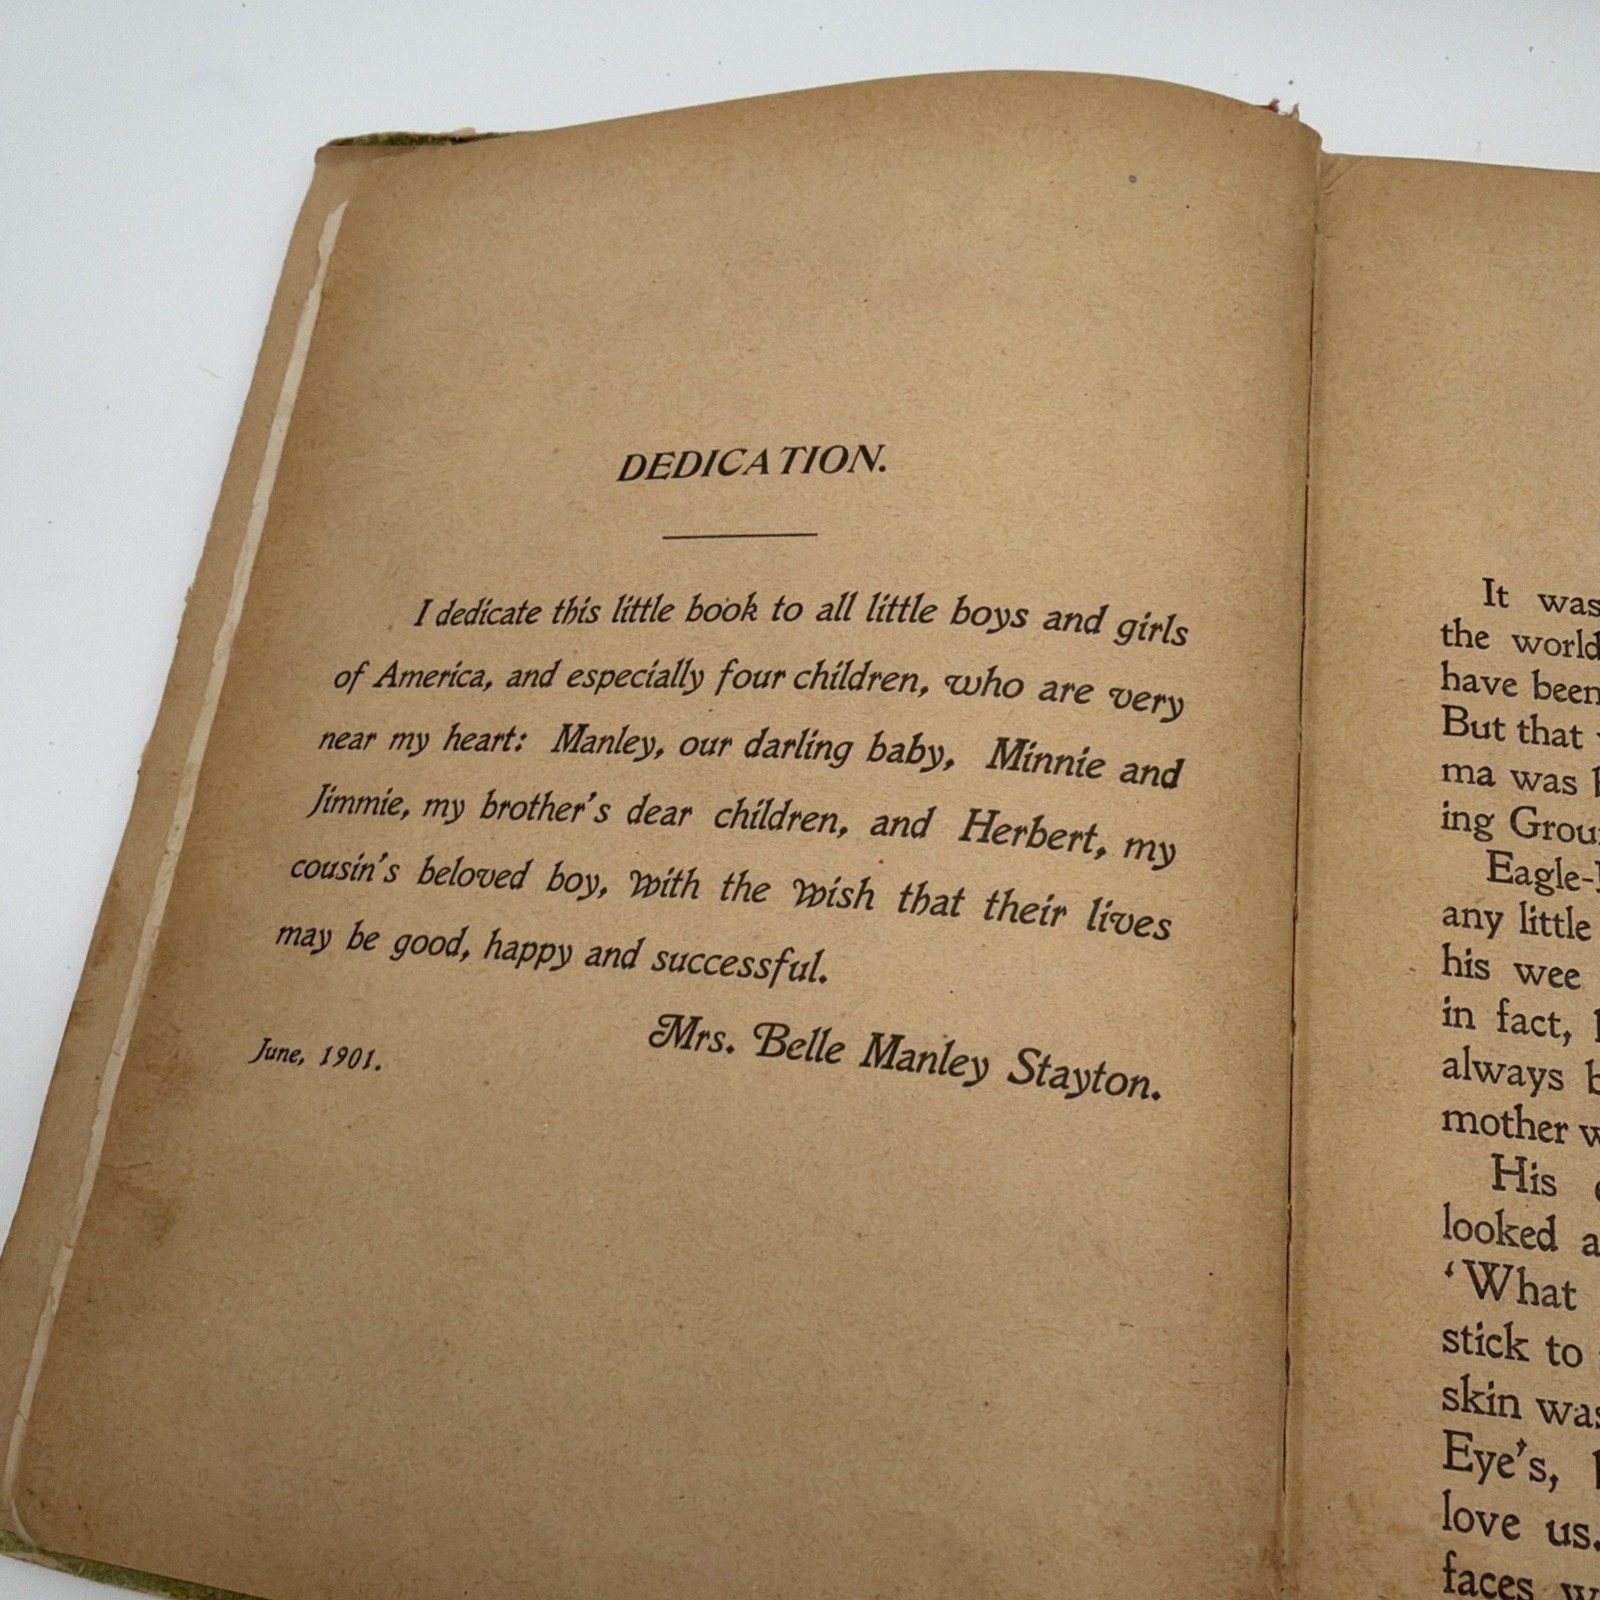 DEDICATION.
I dedicate this little book to all little boys and girls
of America, and especially four children, who are very
near my heart: Manley, our darling baby, Minnie and
Jimmie, my brother's dear children, and Herbert, my
cousin's beloved boy, with the wish that their lives
may be good, happy and successful.
Mrs. Belle Manley Stayton.
June, 1901.
It was
the world
have been
But that
ma was
ing
Eagle-
any little
his wee
in fact,
always
mother
His
looked
‘What
stick to
skin was
Eye's,
love us.
faces